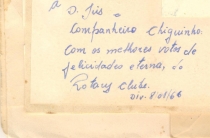 a D. Jús e
Companheiro Chiquinho.
Com os melhores votos de
felicidades eterna, do
Rotary Clube.
Div. 8/01/66